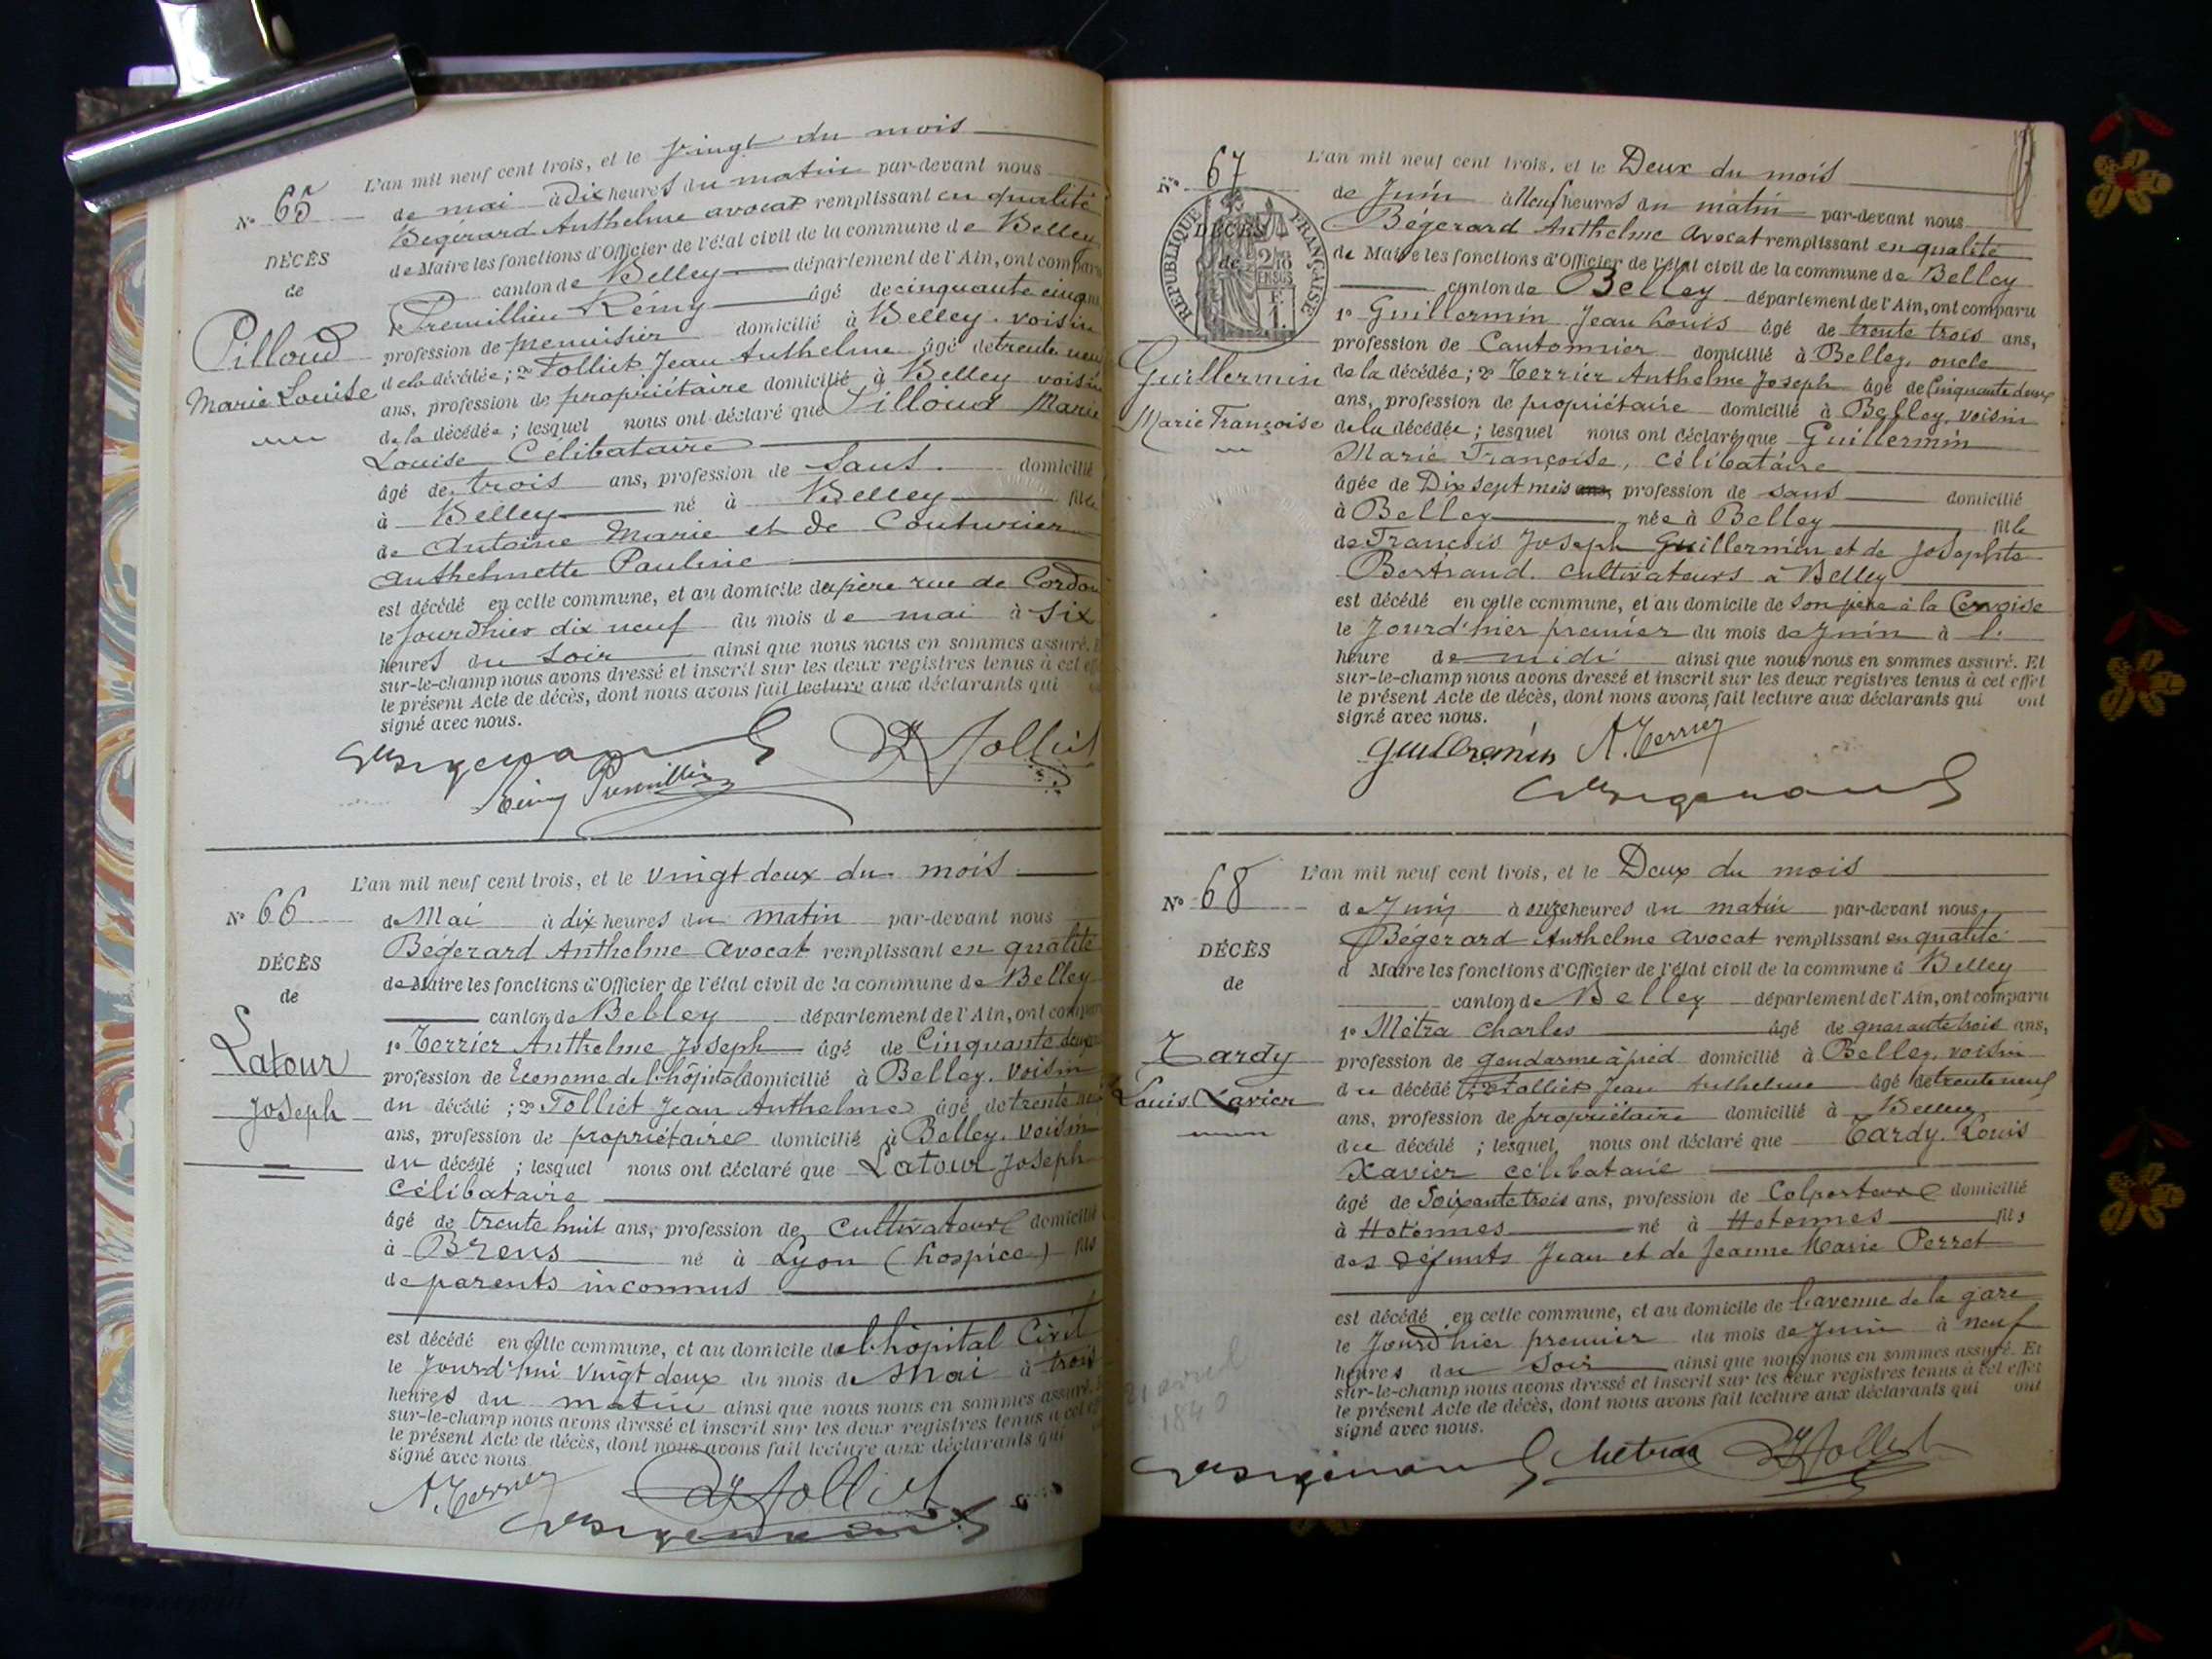 L'an mil neuf cent trois, et le vingt du mois
N° 65
de mai à dix heures du matin par-devant nous
Bégerard Anthelme avocat remplissant en qualité
DÉCÈS
de Maire les fonctions d'Officier de l'état civil de la commune de Belley
de
canton de Belley département de l'Ain, ont comparu
Premillieu Rémy âgé de cinquante cinq
Pilloud
profession de menuisier domicilié à Belley. voisin
Marie Louise
de la décédée ; 2° Folliet Jean Anthelme âgé de trente neuf
ans, profession de propriétaire domicilié à Belley voisin
de la décédée ; lesquel nous ont déclaré que Pilloud Marie
Louise Célibataire
âgé de trois ans, profession de Sans. domicilié
à Belley né à Belley fille
de Antoine Marie et de Couturier
Anthelmette Pauline
est décédé en cette commune, et au domicile du père rue de Cordon
le jourd'hier dix neuf du mois de mai à six
heures du soir ainsi que nous nous en sommes assuré. E
sur-le-champ nous avons dressé et inscrit sur les deux registres tenus à cet eff
le présent Acte de décès, dont nous avons fait lecture aux déclarants qui
signé avec nous.
Rémy Premillieu
Folliet
L'an mil neuf cent trois, et le vingt deux du mois
N° 66
de Mai à dix heures du matin par-devant nous
Bégerard Anthelme Avocat remplissant en qualité
DÉCÈS
de Maire les fonctions d'Officier de l'état civil de la commune de Belley
de
canton de Belley département de l'Ain, ont comparu
Latour
1° Terrier Anthelme Joseph âgé de Cinquante deux
profession de Econome de l'hôpital domicilié à Belley. voisin
Joseph
du décédé ; 2° Folliet Jean Anthelme âgé de trente neuf
ans, profession de propriétaire domicilié à Belley. voisin
du décédé ; lesquel nous ont déclaré que Latour Joseph
Célibataire
âgé de trente huit ans, profession de Cultivateur domicilié
à Brens né à Lyon (hospice) fils
de parents inconnus
est décédé en cette commune, et au domicile de l'hôpital Civil
le Jourd'hui vingt deux du mois de Mai à trois
heures du matin ainsi que nous nous en sommes assuré. E
sur-le-champ nous avons dressé et inscrit sur les deux registres tenus à cet ef
le présent Acte de décès, dont nous avons fait lecture aux déclarants qui
signé avec nous.
A. Terrier
Folliet
L'an mil neuf cent trois, et le Deux du mois
N° 67
de Juin à Neuf heures du matin par-devant nous
REPUBLIQUE FRANÇAISE
DÉCÈS
de
Bégerard Anthelme Avocat remplissant en qualité
de Maire les fonctions d'Officier de l'état civil de la commune de Belley
canton de Belley département de l'Ain, ont comparu
1° Guillermin Jean Louis âgé de trente trois ans,
profession de Cantonnier domicilié à Belley, oncle
Guillermin
de la décédée ; 2° Terrier Anthelme Joseph âgé de Cinquante deux
ans, profession de propriétaire domicilié à Belley, voisin
Marie Françoise
de la décédée ; lesquel nous ont déclaré que Guillermin
Marie Françoise, célibataire
âgée de Dix sept mois ans, profession de sans domicilié
à Belley née à Belley fille
de François Joseph Guillermin et de Josephte
Bertrand. cultivateurs à Belley
est décédé en cette commune, et au domicile de son père à la Cervoise
le Jourd'hier premier du mois de Juin à l'
heure de midi ainsi que nous nous en sommes assuré. Et
sur-le-champ nous avons dressé et inscrit sur les deux registres tenus à cet effet
le présent Acte de décès, dont nous avons fait lecture aux déclarants qui ont
signé avec nous.
Guillermin A. Terrier
L'an mil neuf cent trois, et le Deux du mois
N° 68
de Juin à onze heures du matin par-devant nous
Bégérard Anthelme Avocat remplissant en qualité
DÉCÈS
d Maire les fonctions d'Officier de l'état civil de la commune d Belley
de
canton de Belley département de l'Ain, ont comparu
1° Métra Charles âgé de quarante trois ans,
Tardy
profession de gendarme à pied domicilié à Belley, voisin
Louis Xavier
du décédé ; 2° Folliet Jean Anthelme âgé de trente neuf
ans, profession de propriétaire domicilié à Belley
du décédé ; lesquel nous ont déclaré que Tardy. Louis
Xavier célibataire
âgé de Soixante trois ans, profession de Colporteur domicilié
à Hotonnes né à Hotonnes fils
des défunts Jean et de Jeanne Marie Perret
est décédé en cette commune, et au domicile de l'avenue de la gare
le Jourd'hier premier du mois de Juin à neuf
heures du soir ainsi que nous nous en sommes assuré. Et
sur-le-champ nous avons dressé et inscrit sur les deux registres tenus à cet effet
21 avril
1840
le présent Acte de décès, dont nous avons fait lecture aux déclarants qui ont
signé avec nous.
Métra Folliet